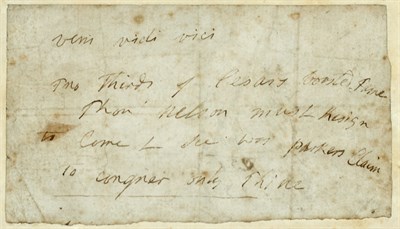 veni vidi vici
Two Thirds of Cesars boasted Fame
Thou Nelson must Resign
to Come & See was parkers Claim
To conquer only Thine